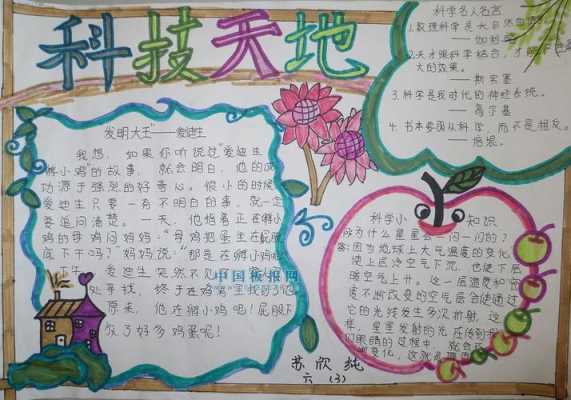 科技天地
科学名人名言
1.数理科学是大自
——伽利略
2.天才跟科学结合，才能
大的效果。
——斯宾塞
3.科学是我时代的神经系统。
——高尔基
4.书本要园从科学，而不是相反。
——培根。
“发明大王”——爱迪生
我想，如果你听说过“爱迪生
孵小鸡”的故事，就会明白，他的成
功源于强烈的好奇心。很小的时候
爱迪生只要一有不明白的事，就一定
要追问清楚。一天，他指着正在孵小
鸡的母鸡问妈妈：“母鸡把蛋坐在屁股
底下干吗？”妈妈说：“那是在孵小鸡呢
午，爱迪生突然不见
处寻找，终于在鸡窝里找到了他
原来，他在孵小鸡吧！屁股下
放了好多鸡蛋呢！
中国板报网
科学小 知识
问为什么星星会一闪一闪的？
答:因为地球上大气温度的变化，
使上层冷空气下沉，也使下层
暖空气上升。这一层温度和密
度不断改变的空气层会使通过
它的光线发生多次折射，这
样，星星发射的光在传到我
们眼睛的过程中，就会
变化，这就
苏欣纯
六（3）